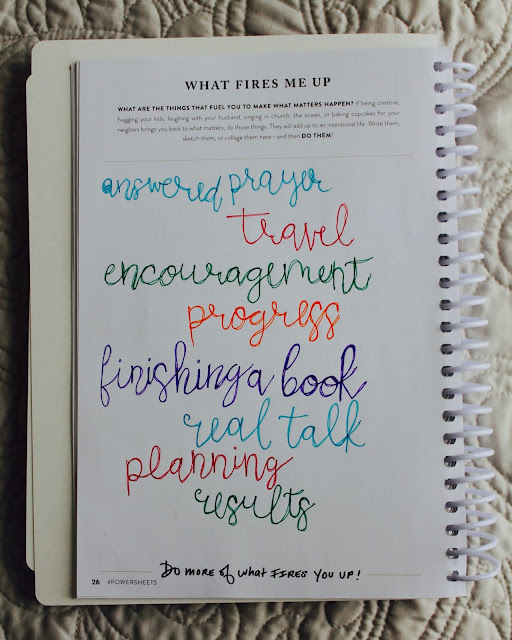 WHAT FIRES ME UP
WHAT ARE THE THINGS THAT FUEL YOU TO MAKE WHAT MATTERS HAPPEN? If being creative,
hugging your kids, laughing with your husband, singing in church, the ocean, or baking cupcakes for your
neigbors brings you back to what matters, do those things. They will add up to an intentional life. Write them,
sketch them, or collage them here—and then DO THEM!
answered prayer
travel
encouragement
progress
finishing a book
real talk
planning
results
26 #POWERSHEETS DO MORE of WHAT FIRES YOU UP!